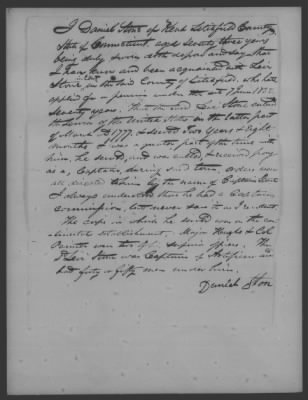 I Daniel Stone of Kent Litchfield County
State of Connecticut, aged seventy three years
being duly sworn doth depose and say that
I have known and been acquainted with Levi
Stone in the said County of Litchfield, who late
applied for a pension under the act 7 June 1832
seventy years. That the said Levi Stone entered
the service of the United States in the latter part
of March AD 1777, & served two years & eight
months. I was a greater part of the time with
him, he served, and was called & received pay
as a Captain, during said term, orders were
all directed to him by the name of Captain Stone
I always understood that he had a Captains
Commission, but never saw it as I recollect.
The corps in which he served was on the con
tinental establishment. Major Hughs & Col
was his superior officer. The
sd Levi Stone was Captain of Artificers and
had forty or fifty men under him.
Daniel Ston